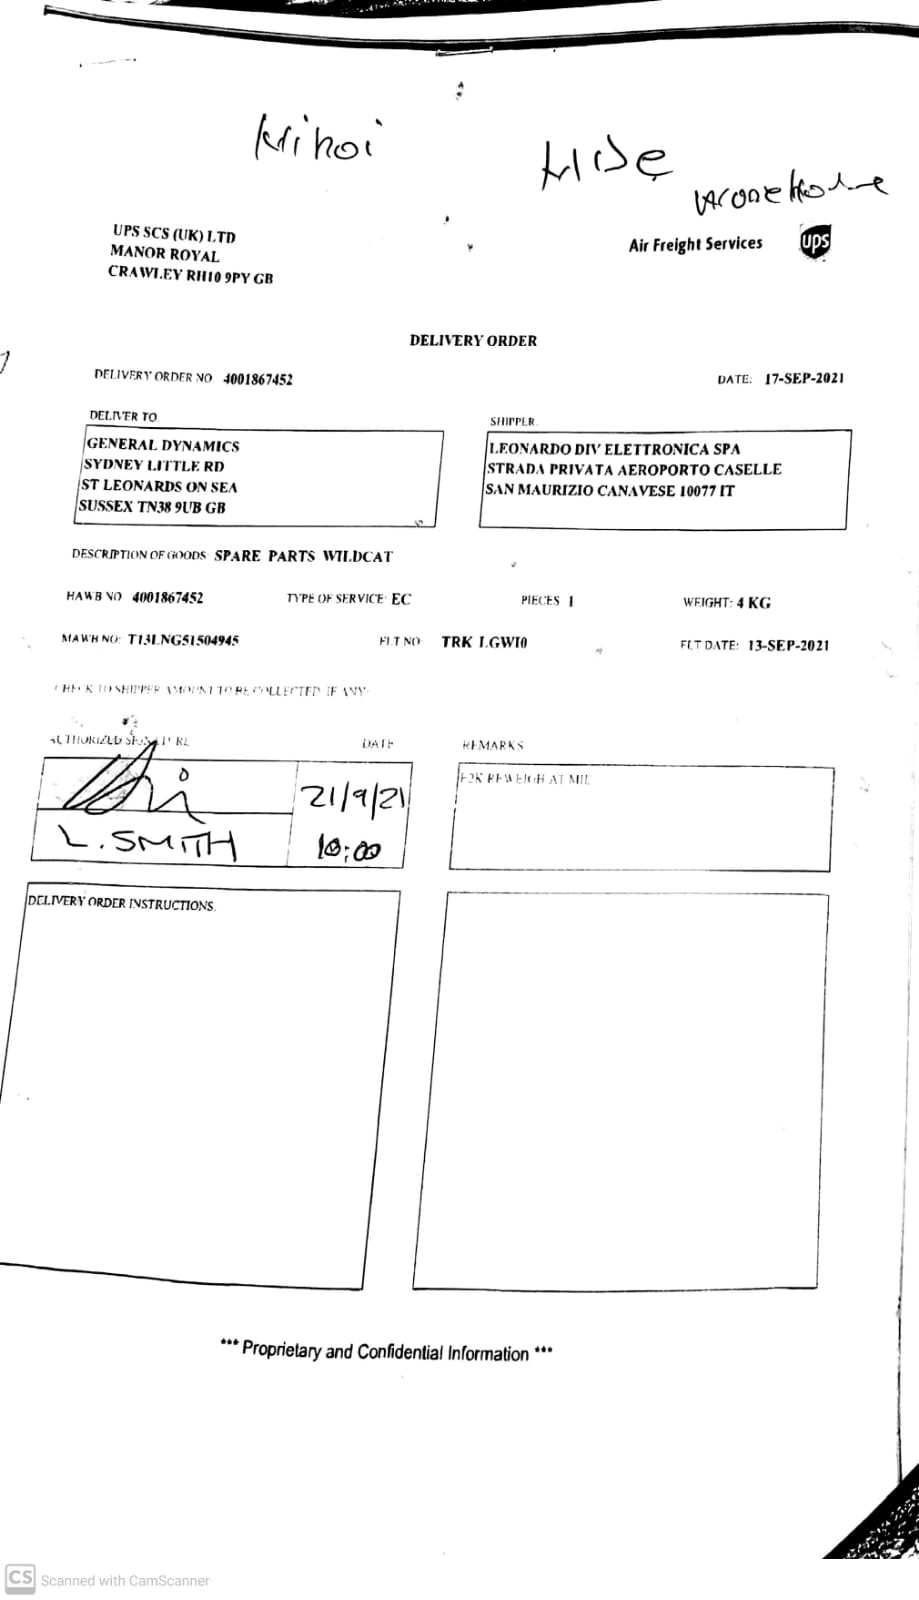 UPS SCS (UK) LTD
MANOR ROYAL
CRAWLEY RH10 9PY GB
Air Freight Services ups
DELIVERY ORDER
DELIVERY ORDER NO 4001867452 DATE: 17-SEP-2021
DELIVER TO
GENERAL DYNAMICS
SYDNEY LITTLE RD
ST LEONARDS ON SEA
SUSSEX TN38 9UB GB
SHIPPER
LEONARDO DIV ELETTRONICA SPA
STRADA PRIVATA AEROPORTO CASELLE
SAN MAURIZIO CANAVESE 10077 IT
DESCRIPTION OF GOODS SPARE PARTS WILDCAT
HAWB NO 4001867452 TYPE OF SERVICE: EC PIECES 1 WEIGHT: 4 KG
MAWB NO: T13LNG51504945 FLT NO TRK LGW10 FLT DATE: 13-SEP-2021
CHECK TO SHIPPER AMOUNT TO BE COLLECTED IF ANY
AUTHORIZED SIGNATURE DATE REMARKS
21/9/21
L. SMITH 10:00
REWEIGH AT MIL
DELIVERY ORDER INSTRUCTIONS.
*** Proprietary and Confidential Information ***
CS Scanned with CamScanner